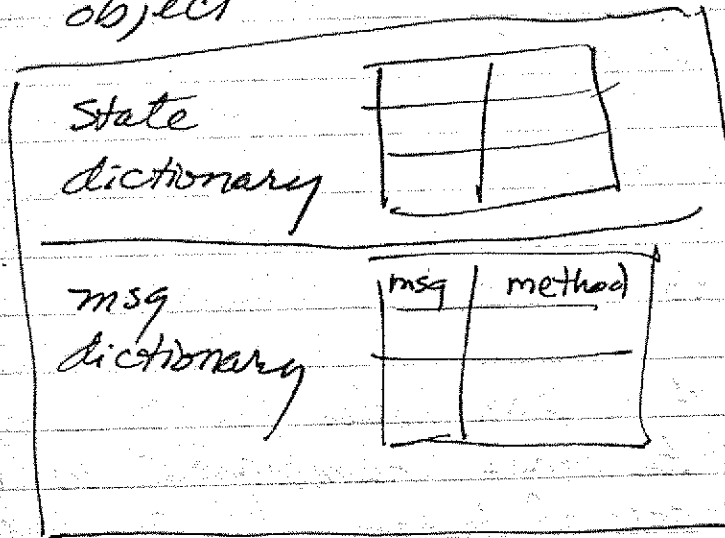 object
State
dictionary
msg
dictionary
msg method